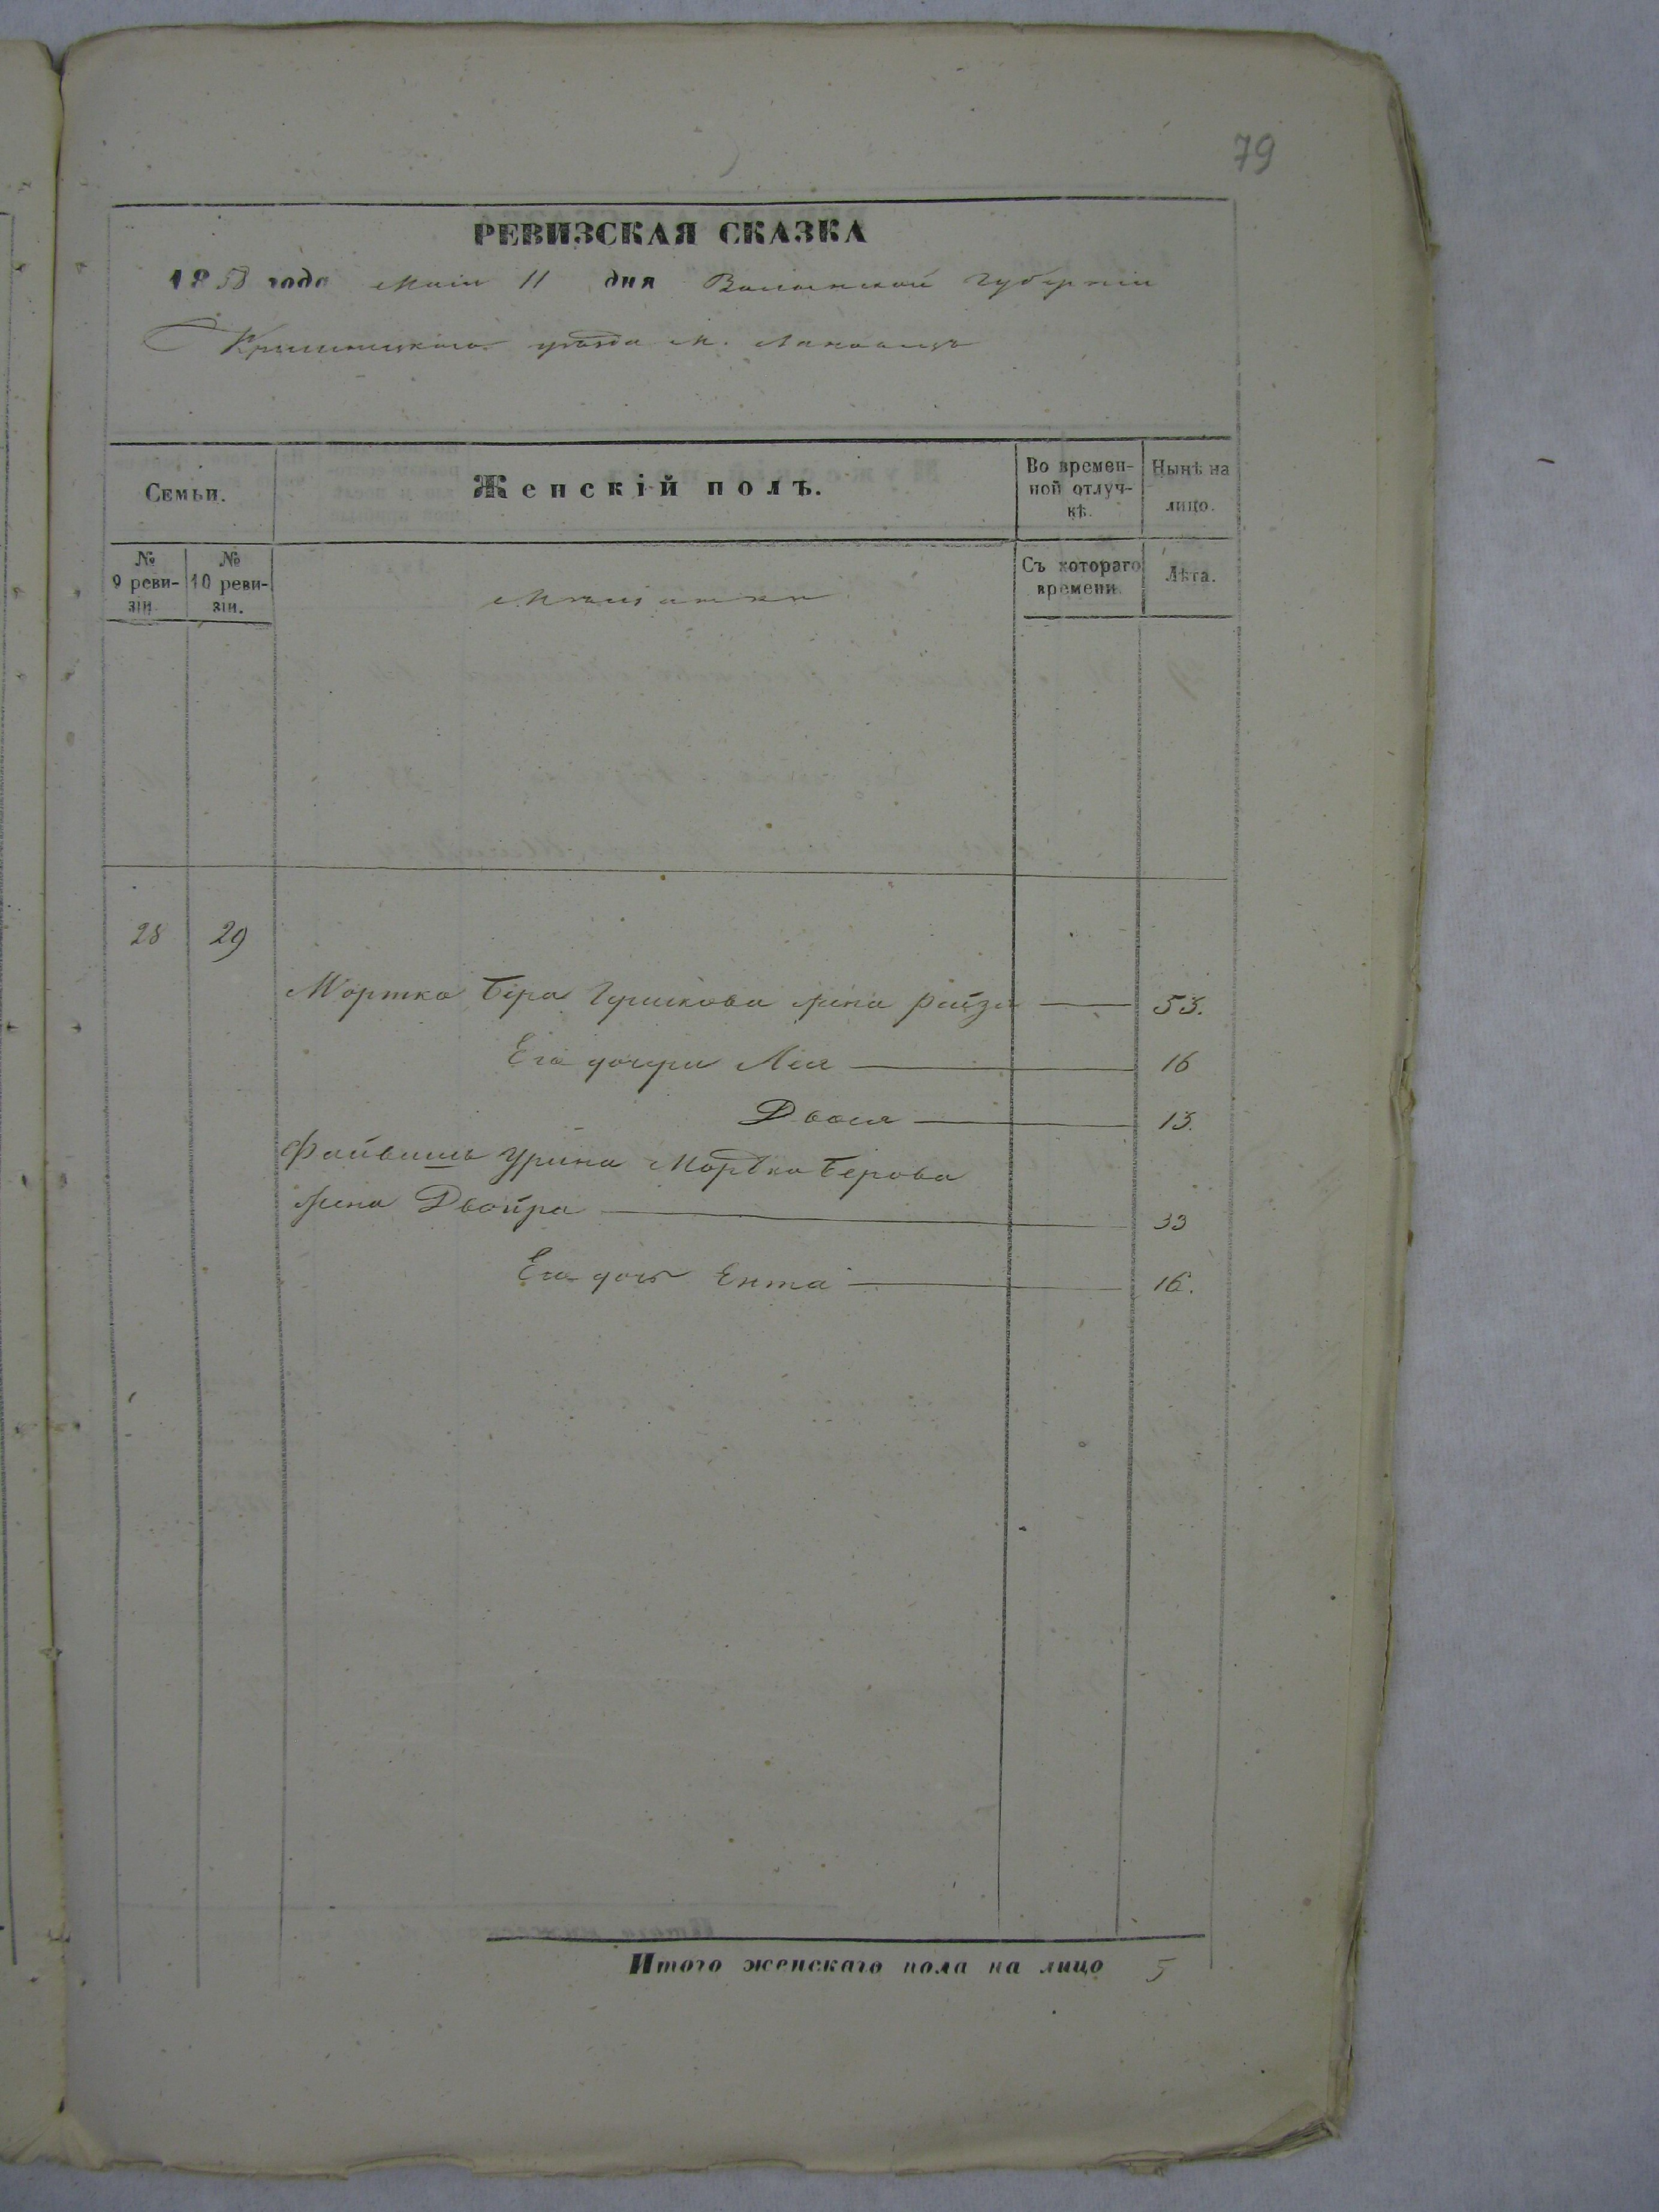 79
РЕВИЗСКАЯ СКАЗКА
1858 года Маія 11 дня Волынской Губерніи
Кременецкаго уѣзда м. Лановецъ
Семьи.
Женскій полъ.
Во времен-
ной отлуч-
кѣ.
Нынѣ на
лицо.
№
9 реви-
зіи
№
10 реви-
зіи.
Мѣщанки
Съ котораго
времени.
Лѣта.
28 29
Мортка Бера Гершкова жена Райзя 53.
Его дочери Лея 16
Двося 13.
Файвишъ Урина Мортка Берова
жена Двойра 33
Его дочь Ента 16.
Итого женскаго пола на лицо 5